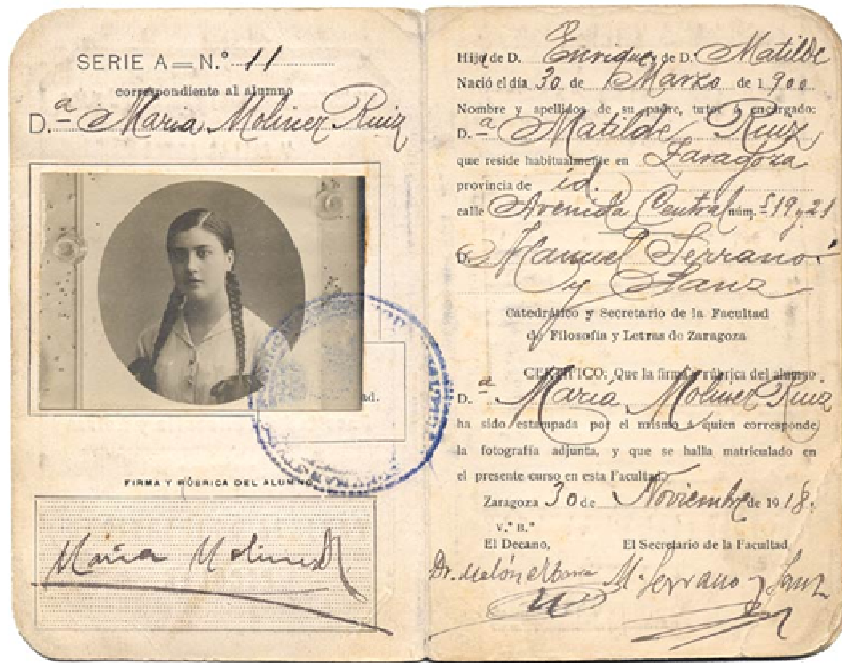 SERIE A=N.º 11
correspondiente al alumno
D.ª Maria Moliner Ruiz
ad.
FIRMA Y RÚBRICA DEL ALUMNO
María Moliner
Hijo de D. Enrique y de D.ª Matilde
Nació el día 30 de Marzo de 1900
Nombre y apellidos de su padre, tutor ó encargado:
D.ª Matilde Ruiz
que reside habitualmente en Zaragoza
provincia de id.
calle Avenida Central núm.s 19 y 21
D. Manuel Serrano
y Sanz
Catedrático y Secretario de la Facultad
de Filosofía y Letras de Zaragoza
CERTIFICO: Que la firma y rúbrica del alumno
D.ª María Moliner Ruiz
ha sido estampada por el mismo á quien corresponde
la fotografía adjunta, y que se halla matriculado en
el presente curso en esta Facultad.
Zaragoza 30 de Noviembre de 1918.
V.º B.º
El Decano, El Secretario de la Facultad,
Dr. M. Serrano y Sanz